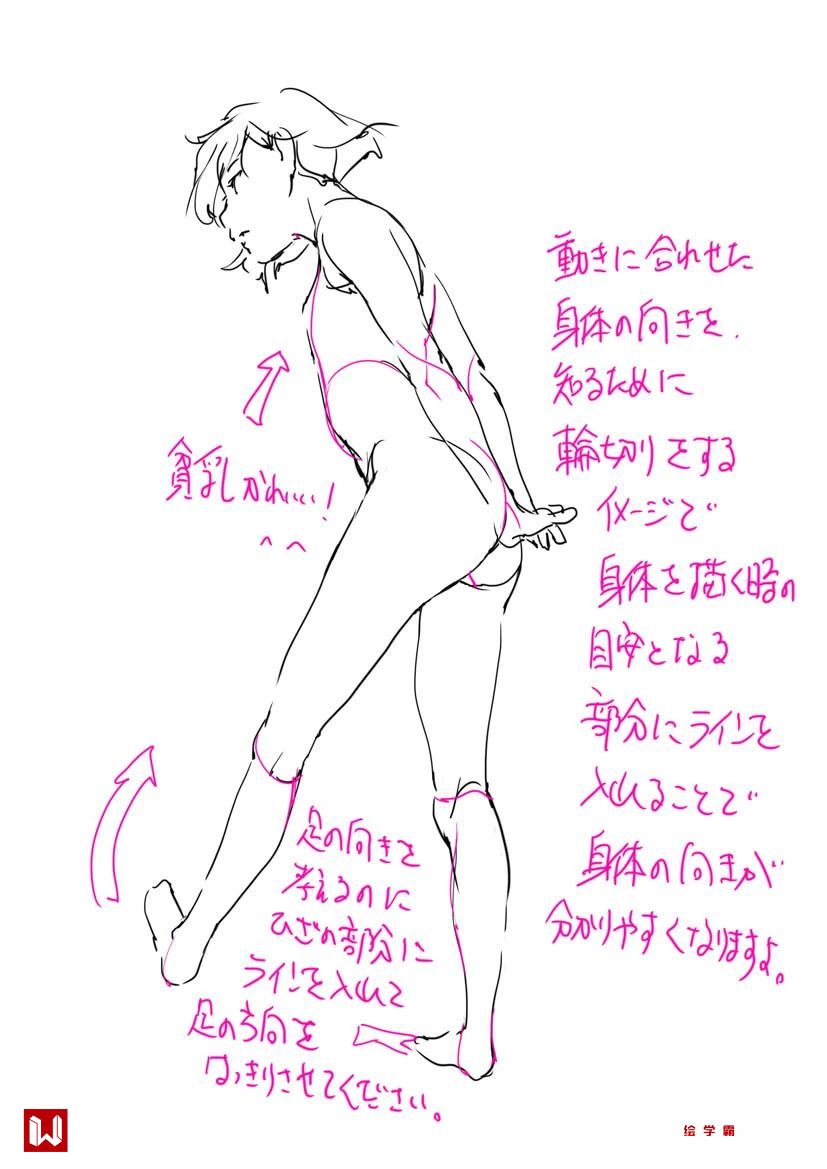 動きに合わせた
身体の向きを、
知るために
輪切りをする
イメージで
身体を描く時の
目安となる
部分にラインを
入れることで
身体の向きが
分かりやすくなりますよ。
貧乳かわいい!
足の向きを
考えるのに
ひざの部分に
ラインを入れて
足の方向を
はっきりさせてください。
绘学霸